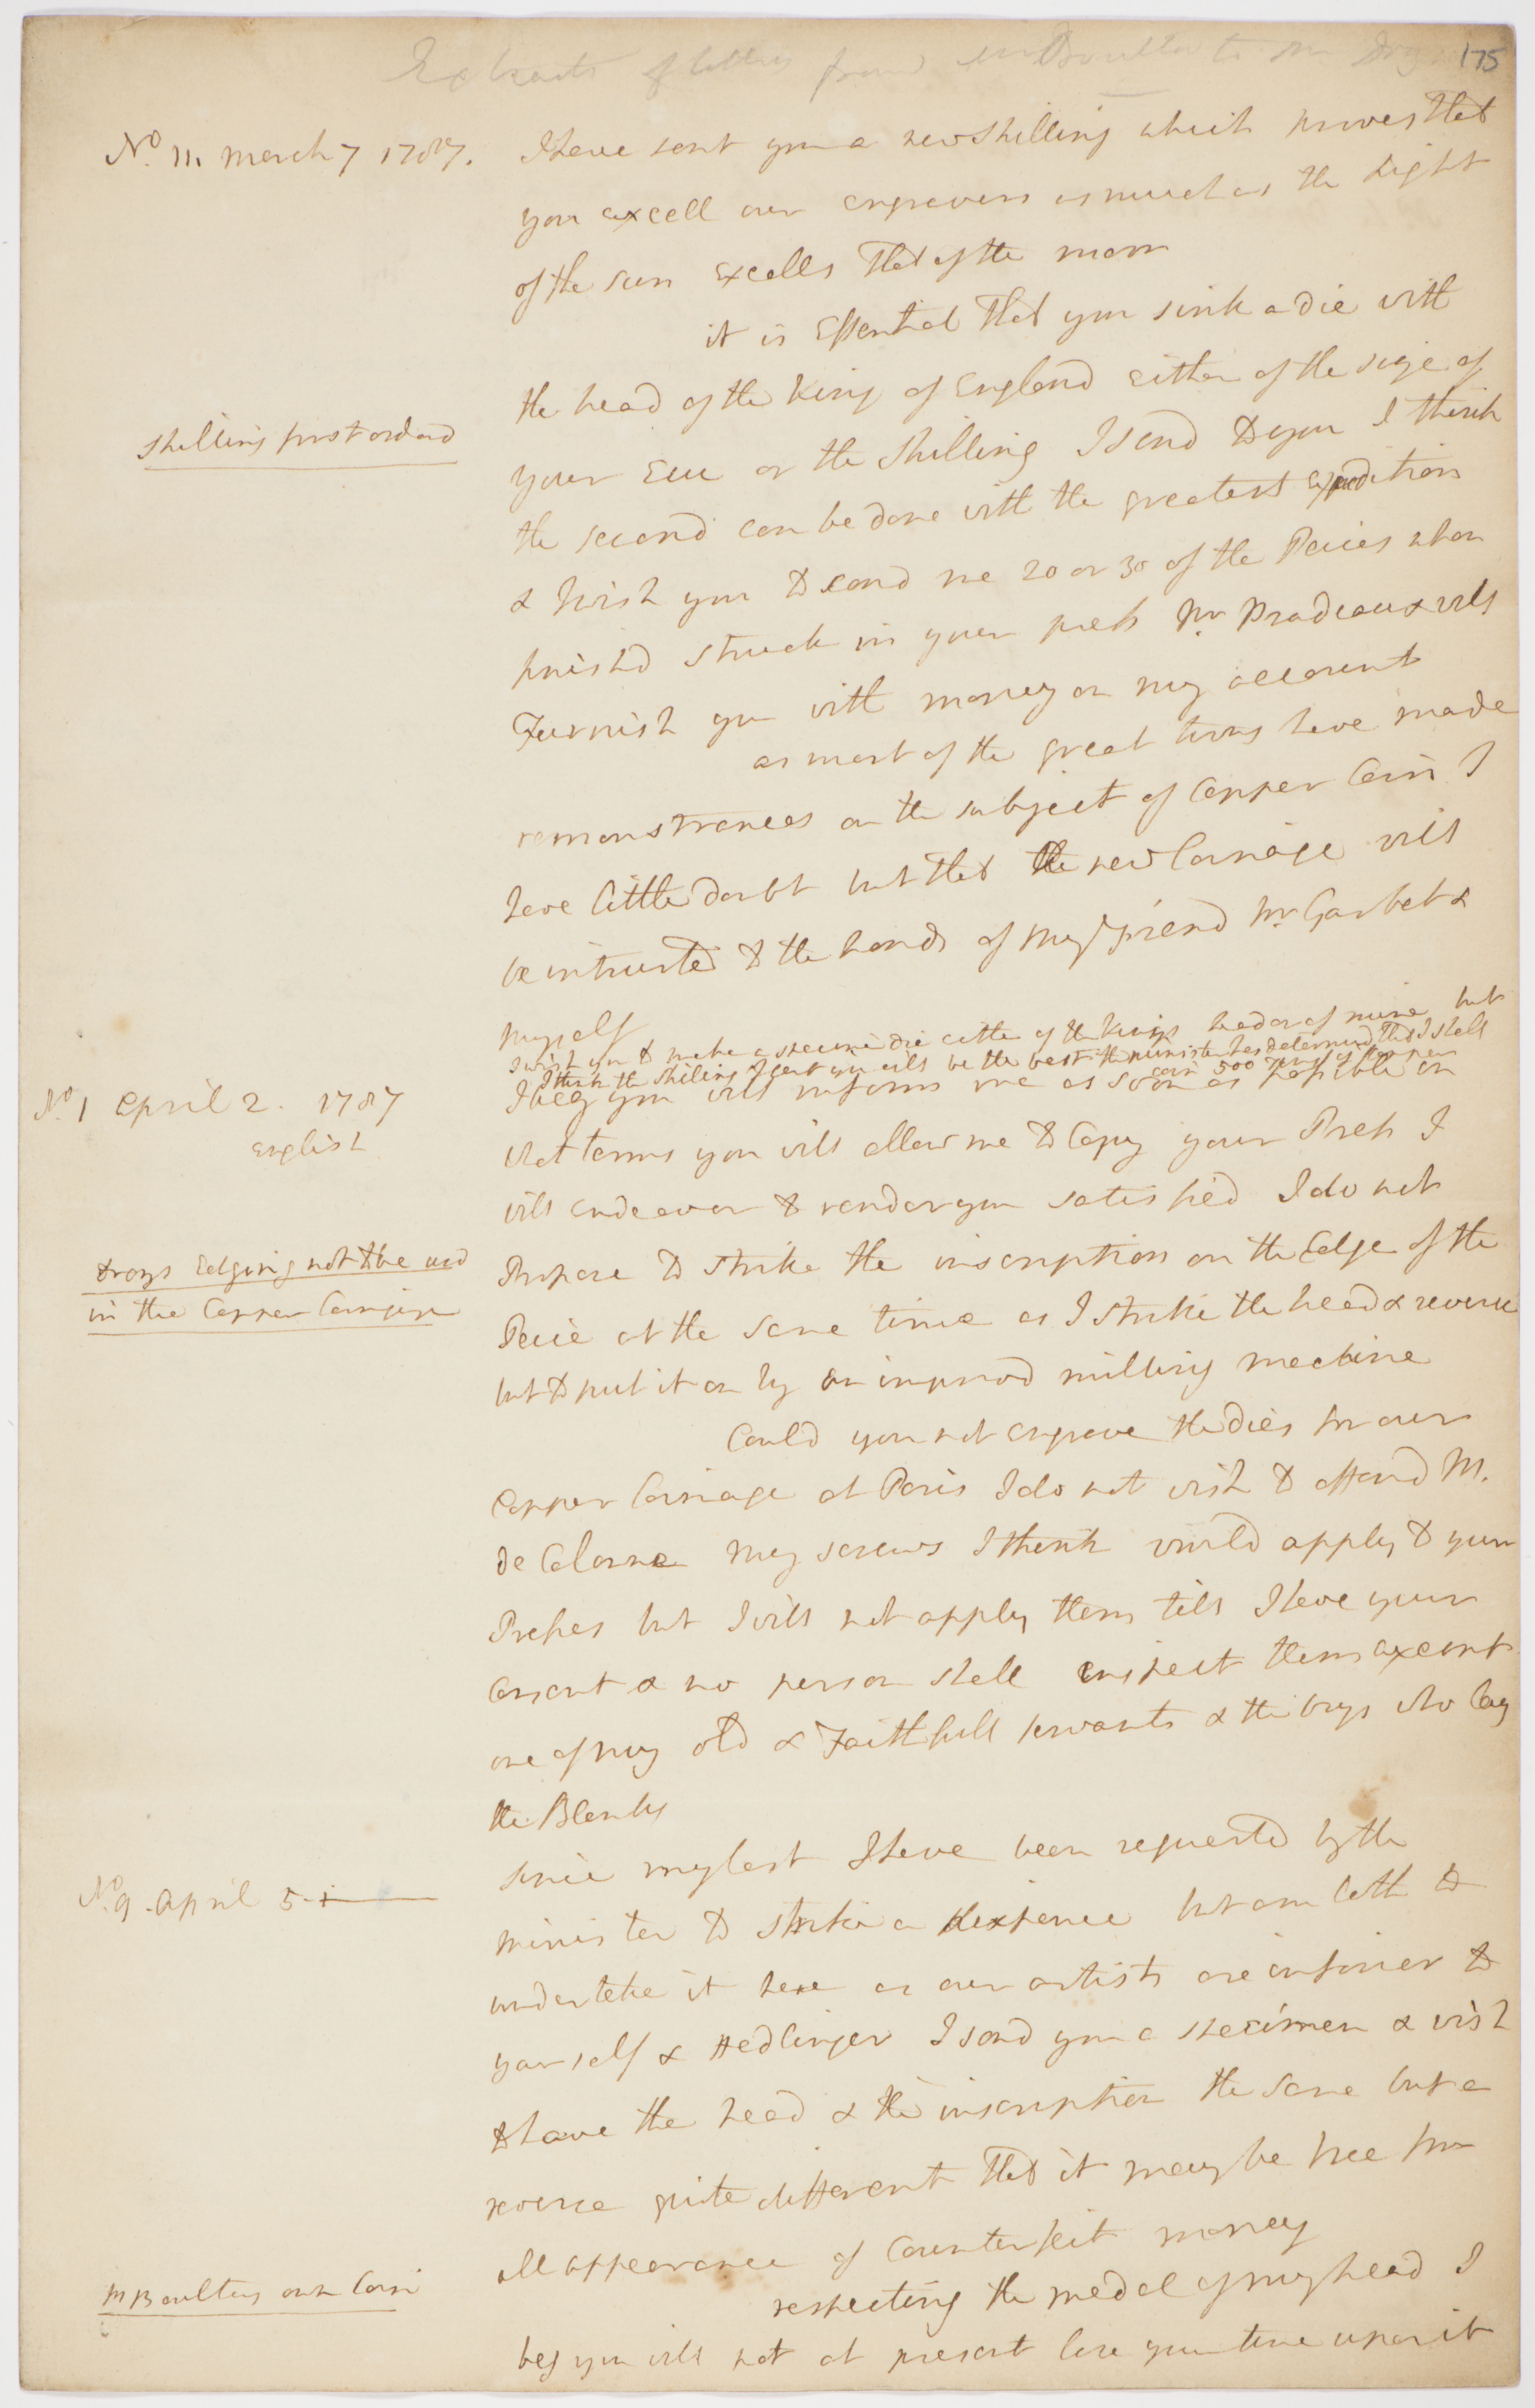 Extracts of letters from Mr Boulton to Mr Droz
175
No. 11. March 7 1787.
I have sent you a new Shilling which proves that
you excell our engravers as much as the Light
of the sun excells that of the moon
it is Essential that you sink a die with
the head of the King of England either of the size of
Shilling first orderd
your Ecu or the Shilling I send to you I think
the second can be done with the greatest expedition
& wish you to send me 20 or 30 of the Peices when
finishd struck in your press Mr Pradeaux will
Furnish you with money on my account
as most of the great towns have made
remonstrances on the subject of Copper Coin I
have little doubt but that the new Coinage will
be intrusted to the hands of my friend Mr Garbet &
myself
I wish you to make a specimen die either of the Kings head or of mine but
I think the Shilling I sent you will be the best the minister has determined that I shall
coin 500 Tons of Copper
No 1 April 2. 1787
English
I beg you will inform me as soon as possible on
what terms you will allow me to Copy your Press I
will endeavor to render you satisfied I do not
Drozs Edging not to be used
in the Copper Coinage
Propose to strike the inscription on the Edge of the
Peice at the same time as I strike the head & reverse
but to put it on by an improvd milling machine
Could you not engrave the dies for our
Copper Coinage at Paris I do not wish to offend M.
de Calonne My screws I think would apply to your
Presses but I will not apply them till I have your
consent & no person shall inspect them except
one of my old & Faithfull servants & the boys who lay
the Blanks
No. 9. April 5
since my last I have been requested by the
minister to strike a sixpence but am loth to
undertake it here as our artists are inferier to
yourself & Hedlinger I send you a specimen & wish
to have the head & the inscription the same but a
reverse quite different that it may be free from
all appearance of Counterfeit money
M Boultons own Coin
respecting the medal of my head I
beg you will not at present lose your time upon it